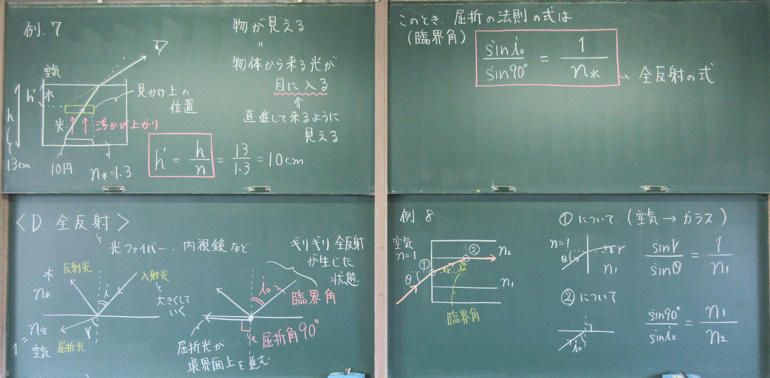 例.7
物が見える
〃
物体から来る光が
目に入る
直進して来るように
見える
空気
水
h'
h
13cm
見かけ上の
位置
光
浮かび上がり
10円
n水=1.3
h' = h/n = 13/1.3 = 10cm
このとき、屈折の法則の式は
(臨界角)
sin i₀/sin90° = 1/n水
全反射の式
〈D 全反射〉
光ファイバー、内視鏡など
水
n水
反射光
入射光
i
大きくして
いく
1=n空
空気
屈折光
r
ぎりぎり全反射
が生じた
状態
i₀
臨界角
屈折角90°
屈折光が
境界面上を進む
例8
空気
n=1
θ
①
②
n₂
n₁
臨界角
①について (空気→ガラス)
n=1
θ
r
n₁
sin r/sin θ = 1/n₁
②について
i₀
sin90°/sin i₀ = n₁/n₂